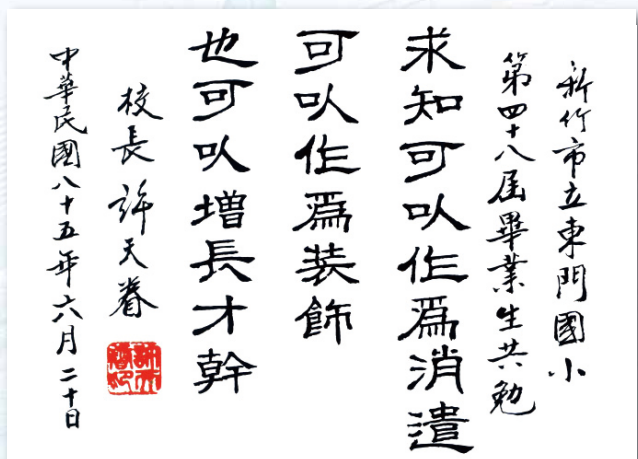 新竹市立東門國小
第四十八屆畢業生共勉
求知可以作爲消遣
可以作爲裝飾
也可以增長才幹
校長 許天眷
中華民國八十五年六月二十日